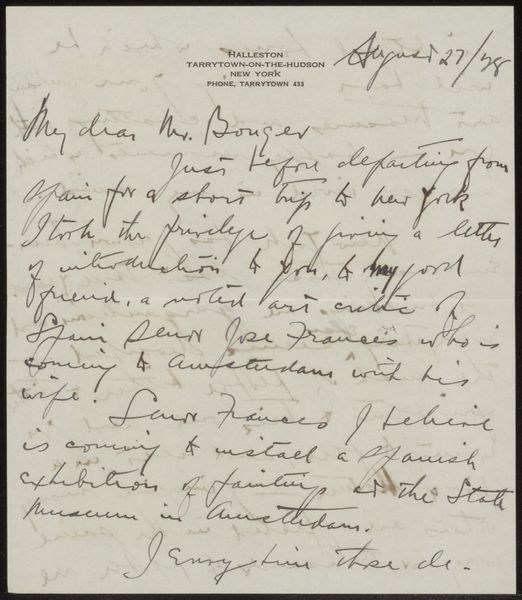 HALLESTON
TARRYTOWN-ON-THE-HUDSON
NEW YORK
PHONE, TARRYTOWN 433
August 27/28
My dear Mr. Bonger
Just before departing from
Spain for a short trip to New York
I took the privilege of giving a letter
of introduction to you, to my good
friend, a noted art critic of
Spain Senor Jose Frances who is
coming to Amsterdam with his
wife.
Senor Frances I believe
is coming to install a Spanish
exhibition of paintings at the State
Museum in Amsterdam.
I those de-